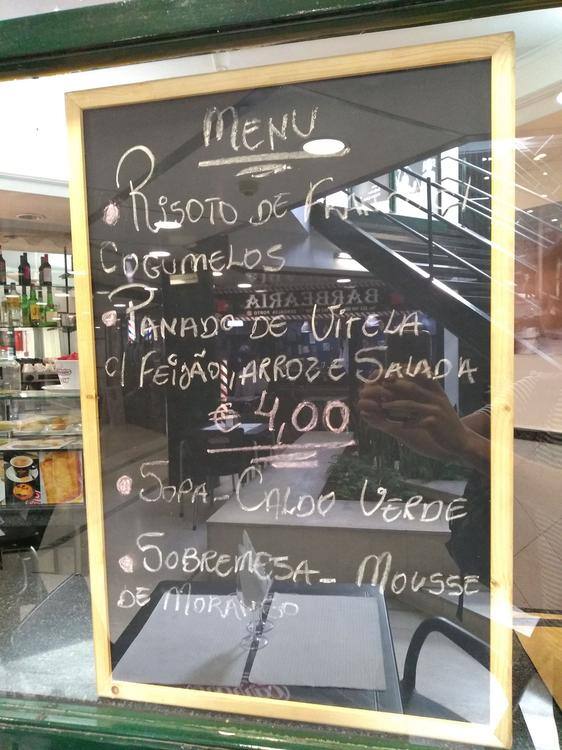 MENU
RISOTO DE
COGUMELOS
BARBEARIA
PANADO DE VITELA
c/ FEIJÃO, ARROZ E SALADA
€ 4,00
SOPA - CALDO VERDE
SOBREMESA - MOUSSE
DE MORANGO